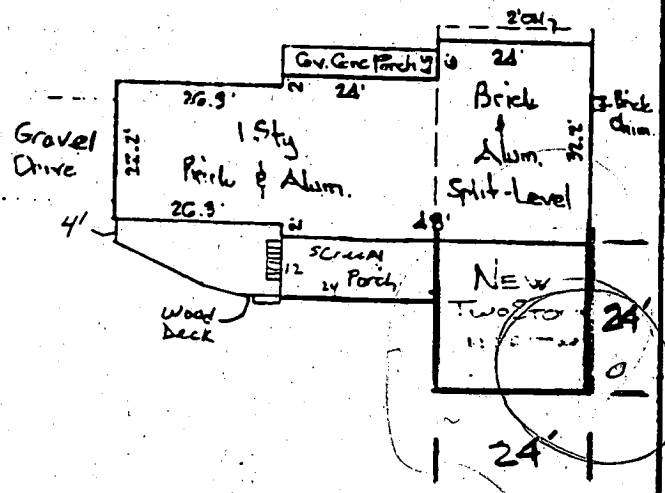 2'OH
Cov. Conc Porch
6
24'
24'
2
26.3'
Brick
&
Alum.
Split-Level
32.2'
Brick
Chim.
Gravel
Drive
22.2'
1 Sty
Brick & Alum.
26.3'
2
48'
4'
12
Screen
Porch
24
Wood
Deck
NEW
TWO STO
24'
0
24'